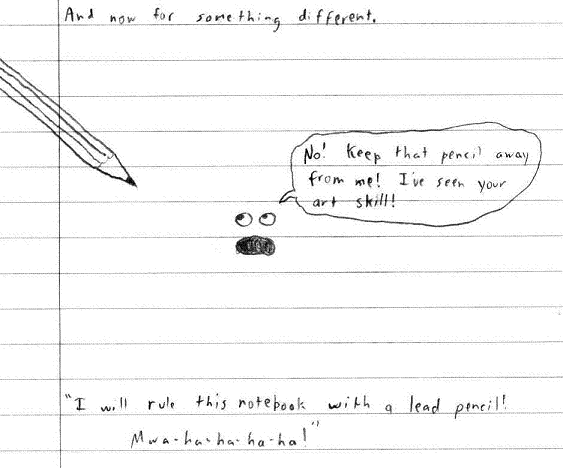 And now for something different.
No! Keep that pencil away
from me! I've seen your
art skill!
"I will rule this notebook with a lead pencil!
Mwa-ha-ha-ha-ha!"